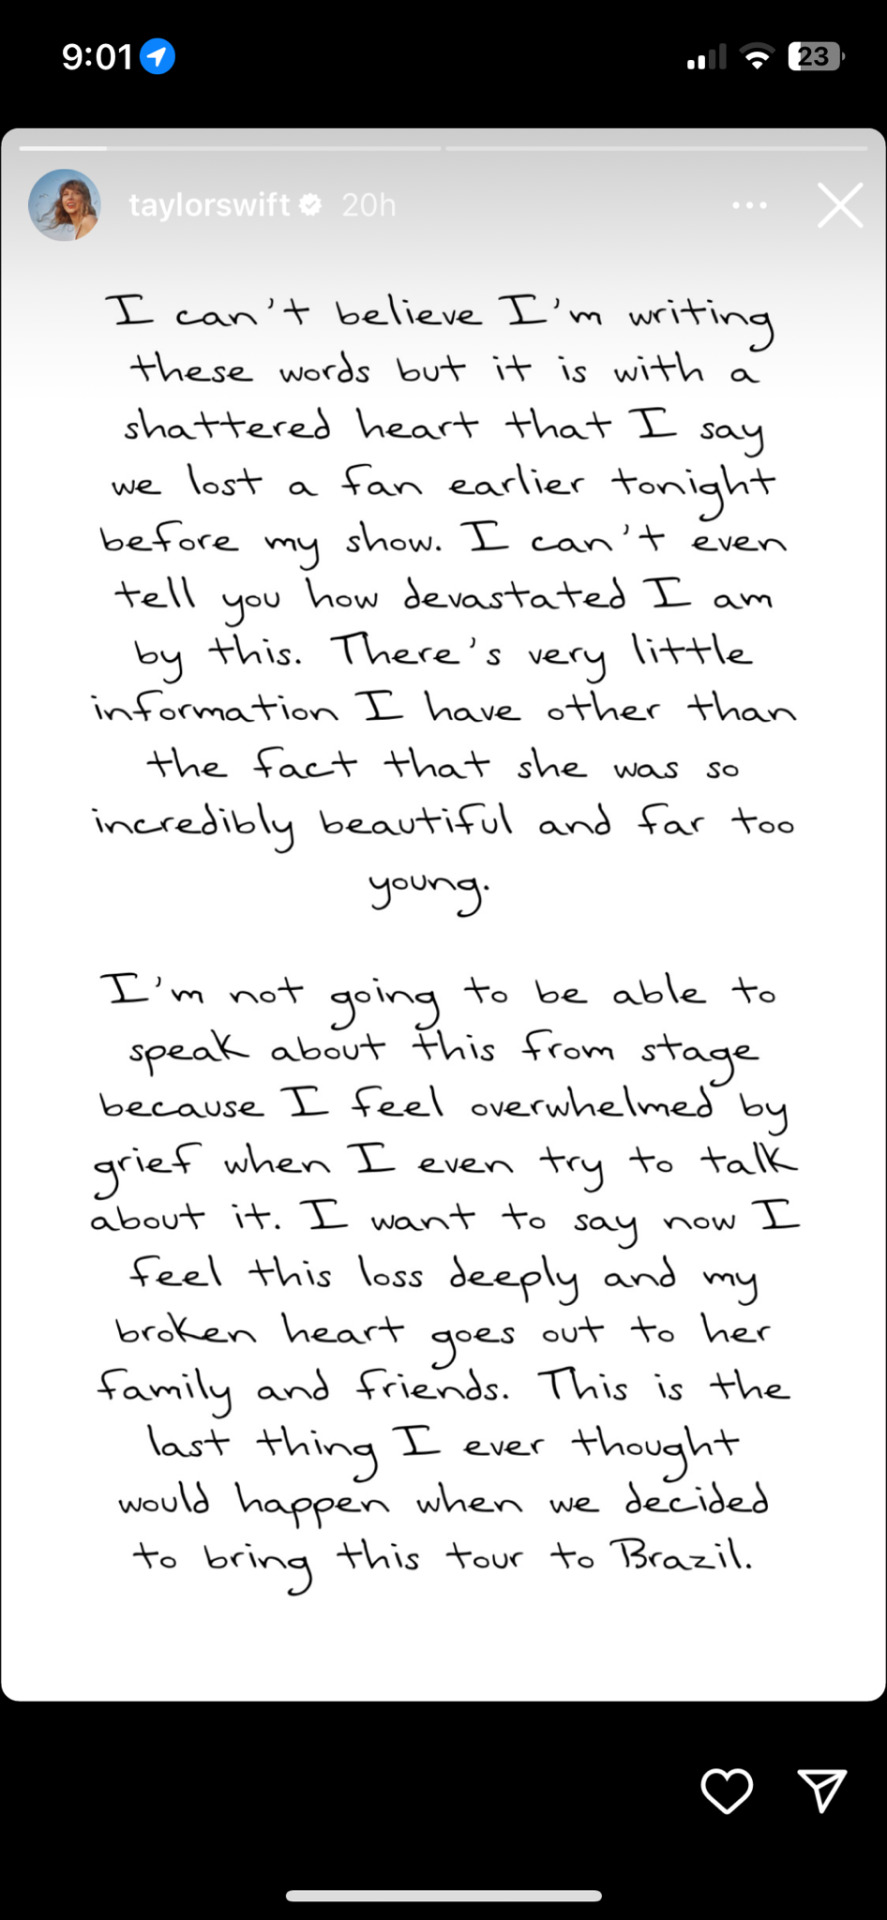 9:01
23
taylorswift 20h
I can't believe I'm writing
these words but it is with a
shattered heart that I say
we lost a fan earlier tonight
before my show. I can't even
tell you how devastated I am
by this. There's very little
information I have other than
the fact that she was so
incredibly beautiful and far too
young.
I'm not going to be able to
speak about this from stage
because I feel overwhelmed by
grief when I even try to talk
about it. I want to say now I
feel this loss deeply and my
broken heart goes out to her
family and friends. This is the
last thing I ever thought
would happen when we decided
to bring this tour to Brazil.